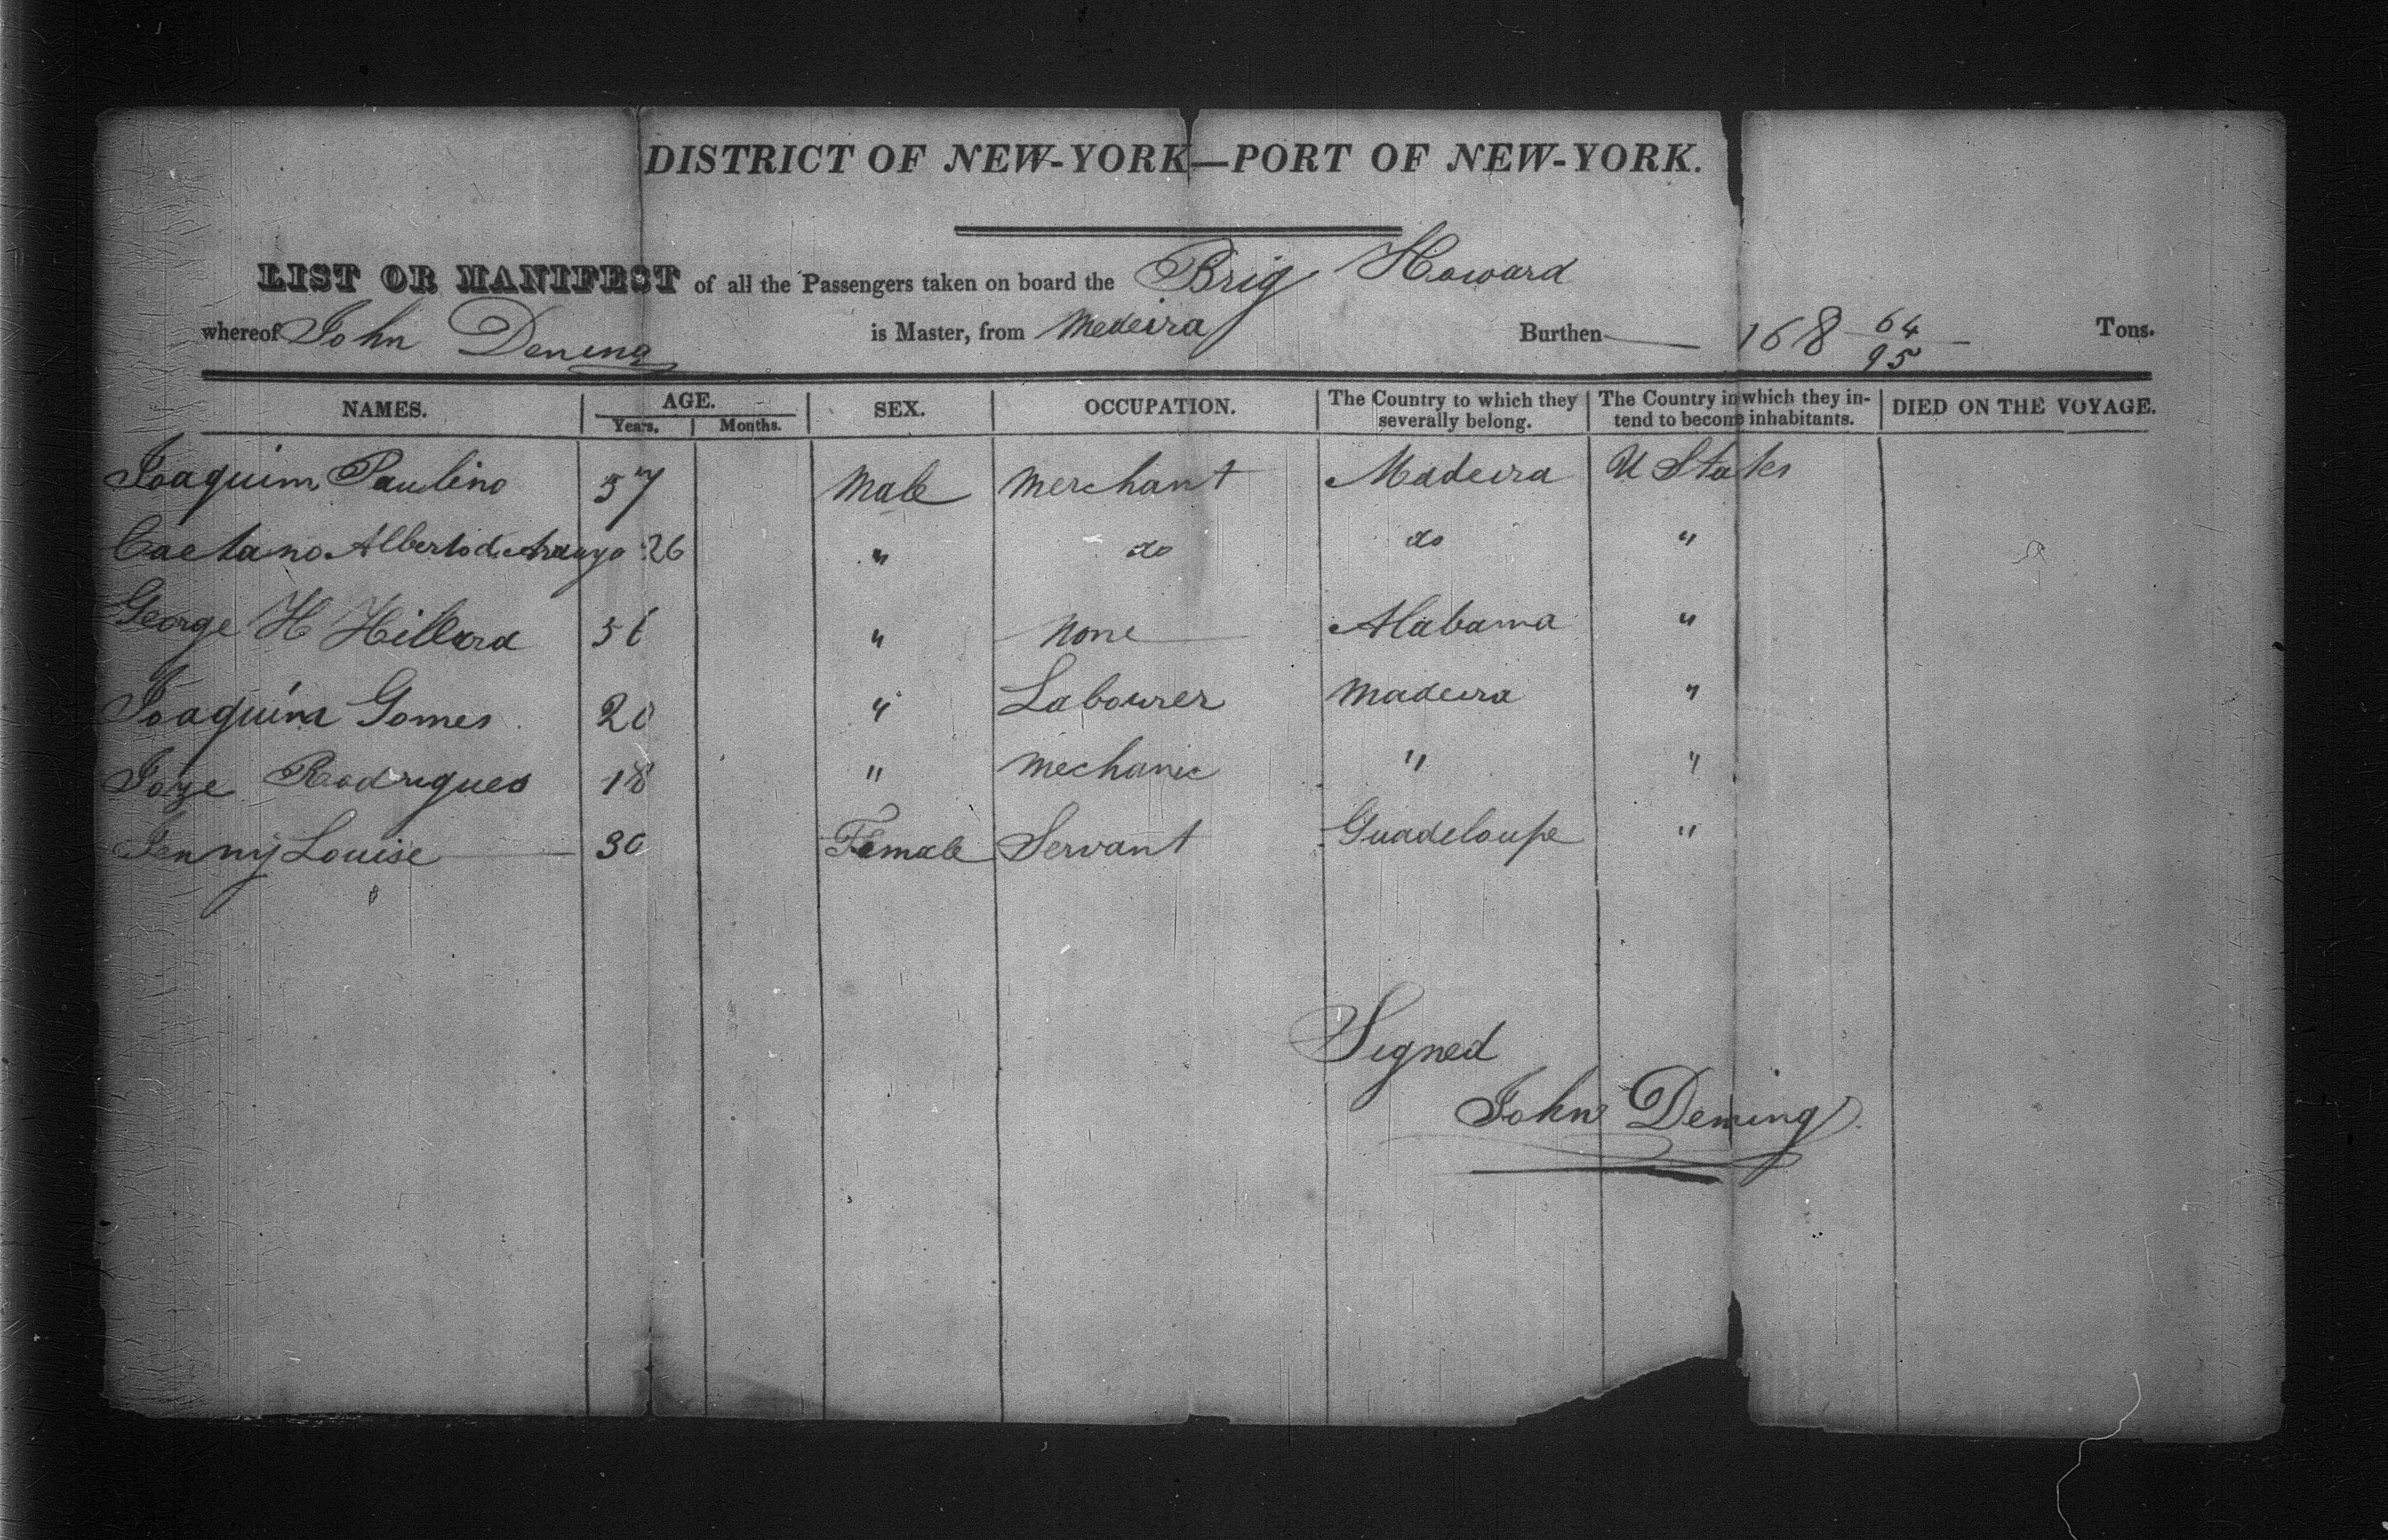 DISTRICT OF NEW-YORK—PORT OF NEW-YORK.
LIST OR MANIFEST of all the Passengers taken on board the Brig Howard
whereof John Dening is Master, from Medeira Burthen 168 64/95 Tons.
NAMES. AGE. Years. Months. SEX. OCCUPATION. The Country to which they severally belong. The Country in which they intend to become inhabitants. DIED ON THE VOYAGE.
Joaquim Paulino 57 Male Merchant Madeira U States
Caetano Alberto de Araujo 26 " do do "
George H Hillard 56 " None Alabama "
Joaquim Gomes 20 " Labourer Madeira "
Joze Rodrigues 18 " Mechanic " "
Jenny Louise 30 Female Servant Guadeloupe "
Signed
John Deming